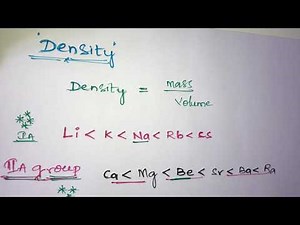 'Density'
Density = mass
Volume
IA Li < K < Na < Rb < Cs
IIA group Ca < Mg < Be < Sr < Ba < Ra